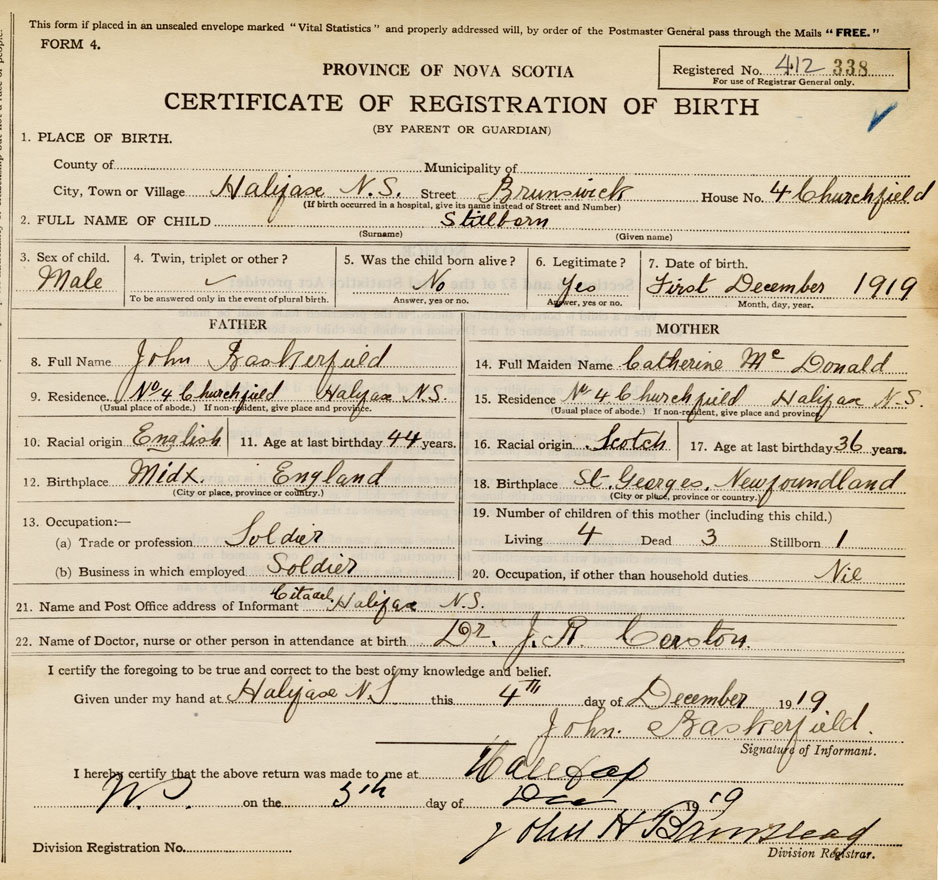 This form if placed in an unsealed envelope marked "Vital Statistics" and properly addressed will, by order of the Postmaster General pass through the Mails "FREE."
FORM 4.
Registered No. 412 338
For use of Registrar General only.
PROVINCE OF NOVA SCOTIA
CERTIFICATE OF REGISTRATION OF BIRTH
(BY PARENT OR GUARDIAN)
1. PLACE OF BIRTH.
County of Municipality of
City, Town or Village Halifax N.S. Street Brunswick House No. 4 Churchfield
(If birth occurred in a hospital, give its name instead of Street and Number)
2. FULL NAME OF CHILD Stilborn
(Surname) (Given name)
3. Sex of child. 4. Twin, triplet or other? 5. Was the child born alive? 6. Legitimate? 7. Date of birth.
Male ✓ No Yes First December 1919
To be answered only in the event of plural birth. Answer, yes or no. Answer, yes or no. Month, day, year.
FATHER
8. Full Name John Baskerfield
9. Residence. No 4 Churchfield Halifax N.S.
(Usual place of abode.) If non-resident, give place and province.
10. Racial origin English 11. Age at last birthday 44 years.
12. Birthplace Midx. England
(City or place, province or country.)
13. Occupation:—
(a) Trade or profession Soldier
(b) Business in which employed Soldier
MOTHER
14. Full Maiden Name Catherine Mc Donald
15. Residence No 4 Churchfield Halifax N.S.
(Usual place of abode.) If non-resident, give place and province.
16. Racial origin Scotch 17. Age at last birthday 36 years.
18. Birthplace St. Georges. Newfoundland
(City or place, province or country.)
19. Number of children of this mother (including this child.)
Living 4 Dead 3 Stillborn 1
20. Occupation, if other than household duties Nil
21. Name and Post Office address of Informant Citadel Halifax N.S.
22. Name of Doctor, nurse or other person in attendance at birth Dr. J. R.
I certify the foregoing to be true and correct to the best of my knowledge and belief.
Given under my hand at Halifax N.S this 4th day of December 1919
John. Baskerfield.
Signature of Informant.
I hereby certify that the above return was made to me at Halifax
N.S. on the 5th day of Dec 1919
John H Barnstead
Division Registrar.
Division Registration No.